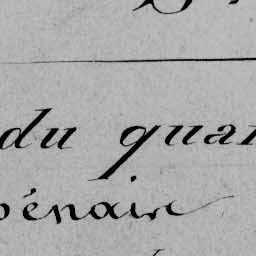 du quar
pénair